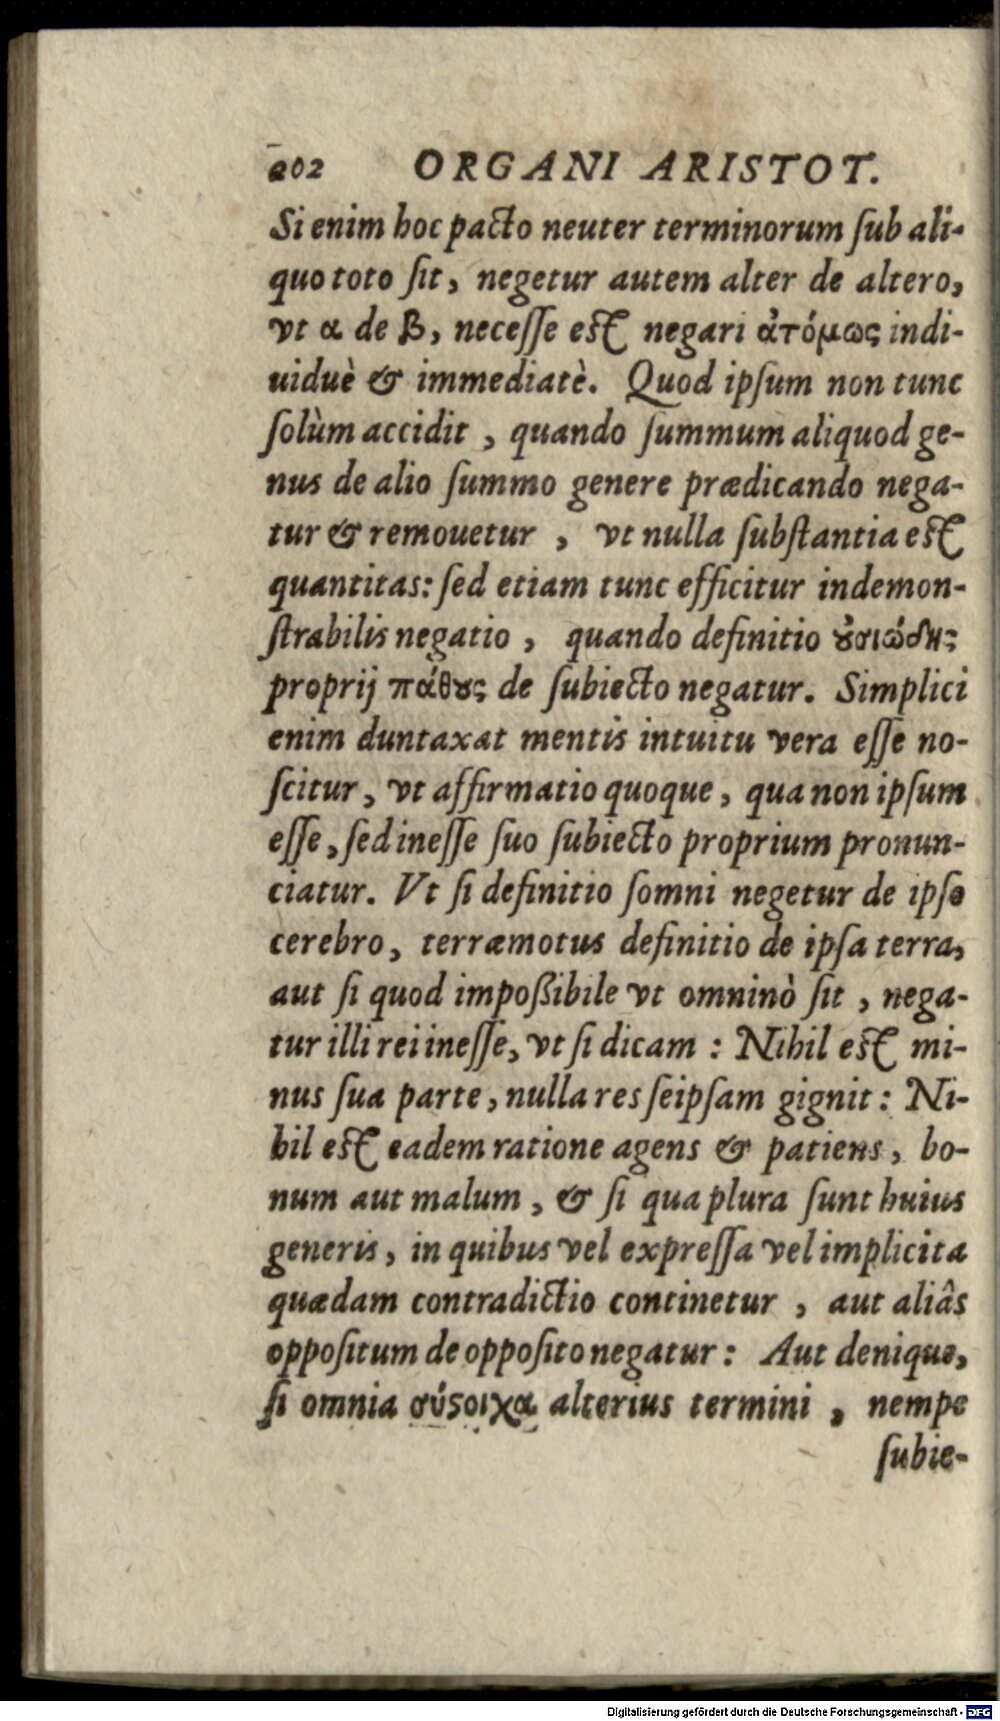 202 ORGANI ARISTOT.
Si enim hoc pacto neuter terminorum ſub ali-
quo toto ſit, negetur autem alter de altero,
vt α de β, neceſſe eſt negari ἀτόμως indi-
uiduè & immediatè. Quod ipſum non tunc
ſolùm accidit, quando ſummum aliquod ge-
nus de alio ſummo genere prædicando nega-
tur & remouetur, vt nulla ſubſtantia eſt
quantitas: ſed etiam tunc efficitur indemon-
ſtrabilis negatio, quando definitio ȣ̓σιώδης
proprij πάθȣς de ſubiecto negatur. Simplici
enim duntaxat mentis intuitu vera eſſe no-
ſcitur, vt affirmatio quoque, qua non ipſum
eſſe, ſed ineſſe ſuo ſubiecto proprium pronun-
ciatur. Vt ſi definitio ſomni negetur de ipſo
cerebro, terræmotus definitio de ipſa terra,
aut ſi quod impoßibile vt omninò ſit, nega-
tur illi rei ineſſe, vt ſi dicam: Nihil eſt mi-
nus ſua parte, nulla res ſeipſam gignit: Ni-
hil eſt eadem ratione agens & patiens, bo-
num aut malum, & ſi qua plura ſunt huius
generis, in quibus vel expreſſa vel implicita
quædam contradictio continetur, aut aliâs
oppoſitum de oppoſito negatur: Aut denique,
ſi omnia σύϛοιχα alterius termini, nempe
ſubie-
Digitalisierung gefördert durch die Deutsche Forschungsgemeinschaft - DFG